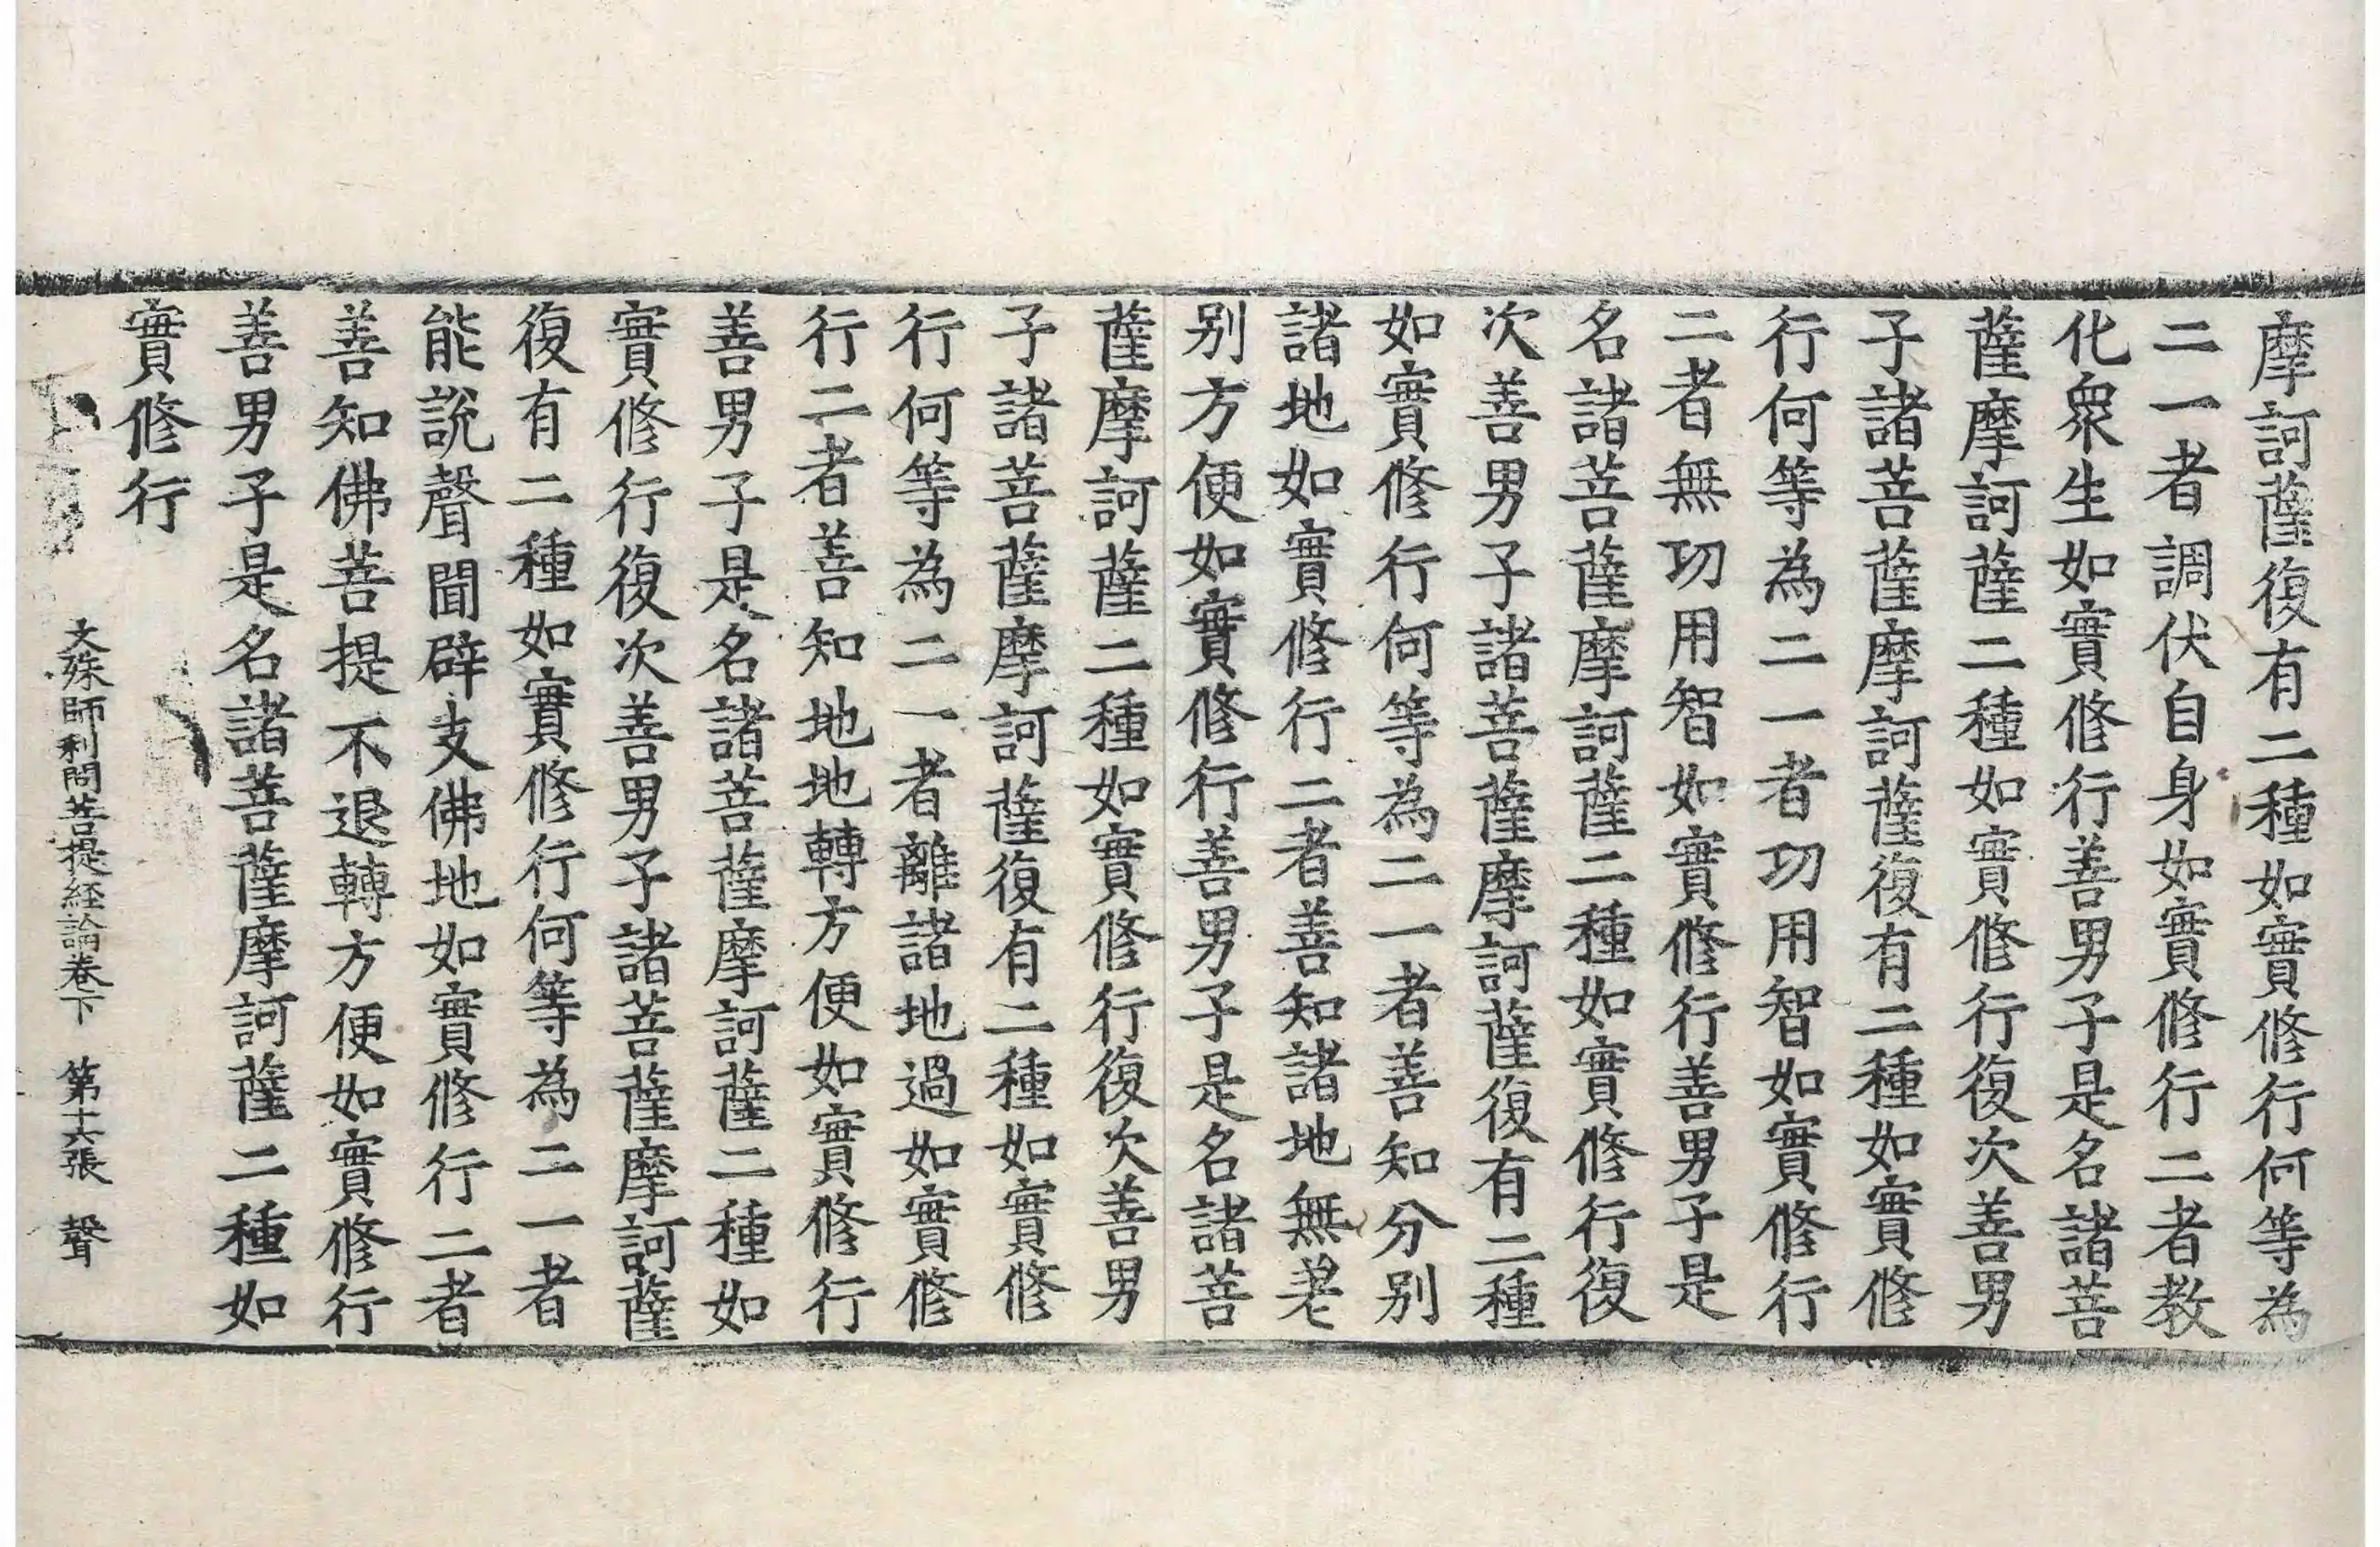 摩訶薩復有二種如實修行何等為
二一者調伏自身如實修行二者教
化衆生如實修行善男子是名諸菩
薩摩訶薩二種如實修行復次善男
子諸菩薩摩訶薩復有二種如實修
行何等為二一者功用智如實修行
二者無功用智如實修行善男子是
名諸菩薩摩訶薩二種如實修行復
次善男子諸菩薩摩訶薩復有二種
如實修行何等為二一者善知分別
諸地如實修行二者善知諸地無差
别方便如實修行善男子是名諸菩
薩摩訶薩二種如實修行復次善男
子諸菩薩摩訶薩復有二種如實修
行何等為二一者離諸地過如實修
行二者善知地地轉方便如實修行
善男子是名諸菩薩摩訶薩二種如
實修行復次善男子諸菩薩摩訶薩
復有二種如實修行何等為二一者
能說聲聞辟支佛地如實修行二者
善知佛菩提不退轉方便如實修行
善男子是名諸菩薩摩訶薩二種如
實修行
文殊師利問菩提経論卷下 第十六張 聲